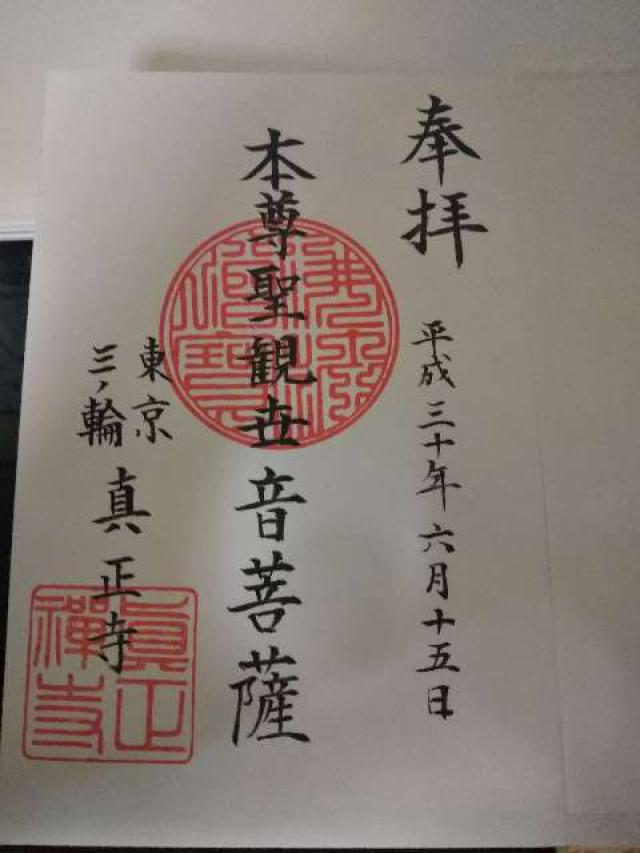 奉拝
平成三十年六月十五日
本尊聖観世音菩薩
東京
三ノ輪
真正寺
佛法僧寶
眞正禅寺